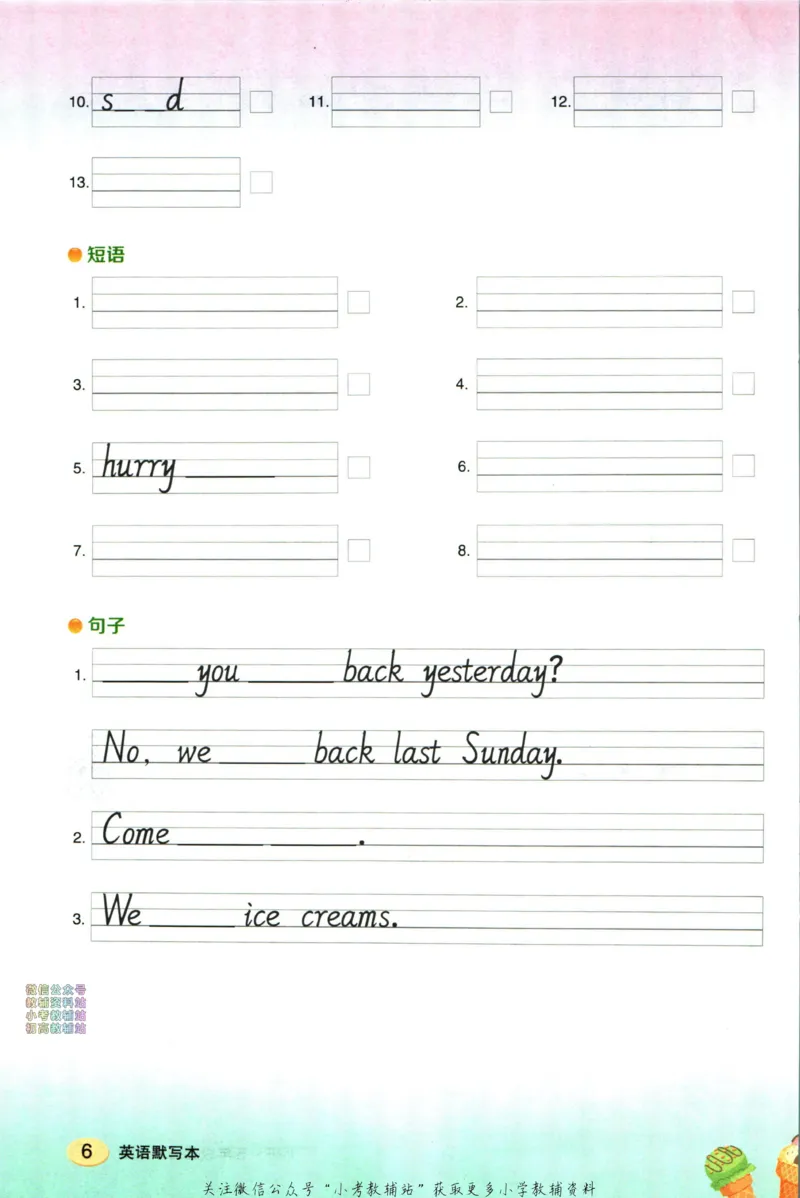 10. s_ _d 11. 12.
13.
短语
1. 2.
3. 4.
5. hurry ______ 6.
7. 8.
句子
1. ______ you ______ back yesterday?
No, we ______ back last Sunday.
2. Come ______ ______.
3. We ______ ice creams.
微信公众号
教辅资料站
小考教辅站
初高教辅站
6 英语默写本
关注微信公众号“小考教辅站”获取更多小学教辅资料